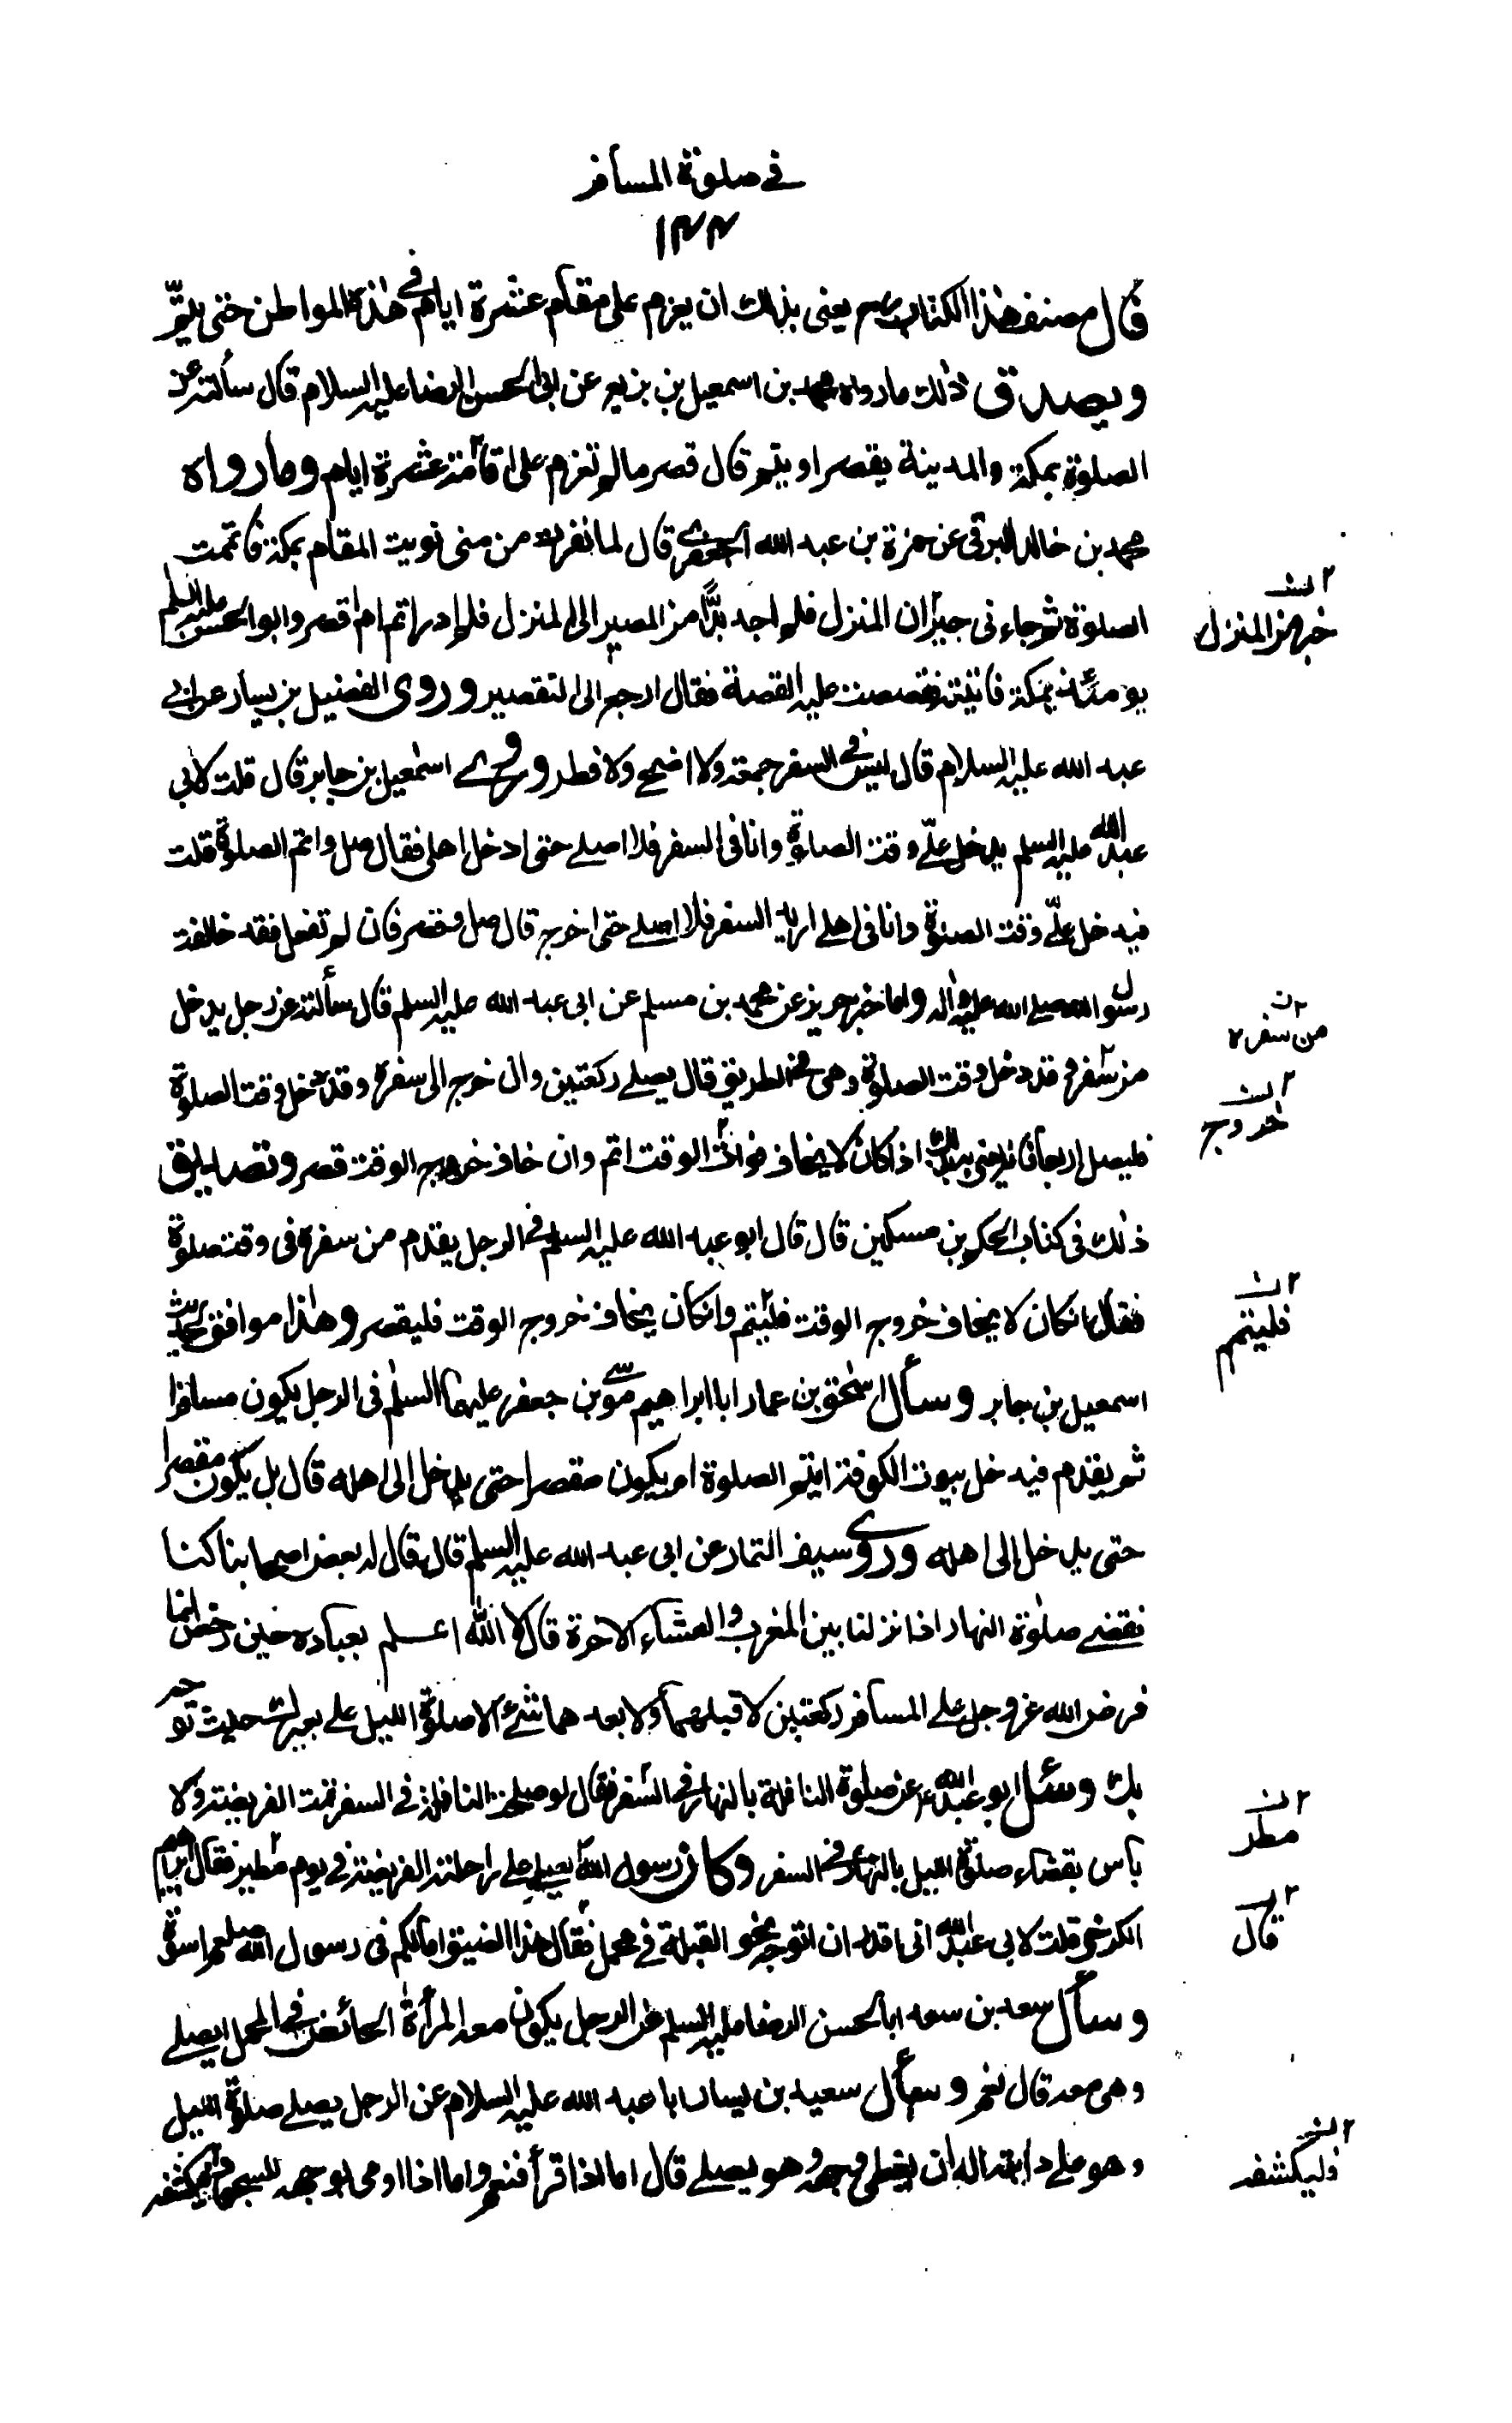 في صلوة المسافر
١٣٣
قال مصنف هذا الكتاب ره يعنى بذلك ان يعزم على مقام عشرة ايام في هذه المواطن حتى يتمّ
ويصدق ذلك ما رواه محمد بن اسمعيل بن بزيع عن ابى الحسن الرضا عليه السلام قال سألته عن
الصلوة بمكة والمدينة يقصر او يتم قال قصر ما لم تعزم على اقامة عشرة ايام وما رواه
محمد بن خالد البرقى عن حمزة بن عبد الله الجعفري قال لما نفرت من منى نويت المقام بمكة فاتممت
الصلوة ثم جاءنى خبر من المنزل فلم اجد بدًّا من المصير الى المنزل فلم ادر اتم ام اقصر وابو الحسن عليه السلم
يومئذ بمكة فاتيته فقصصت عليه القصة فقال ارجع الى التقصير وروى الفضيل بن يسار عن ابي
عبد الله عليه السلام قال ليس في السفر جمعة ولا اضحى ولا فطر وروى اسمعيل بن جابر قال قلت لابي
عبد الله عليه السلم يدخل علّي وقت الصلوة وانا فى السفر فلا اصلے حتى ادخل اهلى فقال صل واتم الصلوة قلت
فيدخل علّي وقت الصلوة وانا فى اهلى اريد السفر فلا اصلے حتى اخرج قال صل وقصر فان لم تفعل فقد خالفت
رسول الله صلى الله عليه واله واما خبر حريز عن محمد بن مسلم عن ابى عبد الله عليه السلم قال سألته عن رجل يدخل
من سفره وقد دخل وقت الصلوة وهى فى الطريق قال يصلے ركعتين وان خرج الى سفره وقد دخل وقت الصلوة
فليصل اربعا فانه يعنى بذلك اذا كان لا يخاف فوات الوقت اتم وان خاف خروج الوقت قصر وتصديق
ذلك فى كتاب الحكم بن مسكين قال قال ابو عبد الله عليه السلم في الرجل يقدم من سفره فى وقت صلوة
فقال ان كان لا يخاف خروج الوقت فليتم وان كان يخاف خروج الوقت فليقصر وهذا موافق لحديث
اسمعيل بن جابر وسأل اسحق بن عمار ابا ابراهيم موسى بن جعفر عليهما السلم فى الرجل يكون مسافرا
ثم يقدم فيدخل بيوت الكوفة ايتم الصلوة ام يكون مقصرا حتى يدخل الى اهله قال بل يكون مقصرا
حتى يدخل الى اهله وروى سيف التمار عن ابى عبد الله عليه السلم قال قال له بعض اصحابنا كنا
نقضى صلوة النهار اذا نزلنا بين المغرب والعشاء الاخرة قال لا الله اعلم بعباده حين رخص انما
فرض الله عز وجل على المسافر ركعتين لا قبلهما ولا بعدهما شئ الا صلوة الليل على بعيرك حيث توجه
بك وسئل ابو عبد الله ع عن صلوة النافلة بالنهار في السفر فقال لو صلحت النافلة في السفر تمت الفريضة ولا
بأس بقضاء صلوة الليل بالنهار في السفر وكان رسول الله يصلي على راحلته الفريضة في يوم مطير فقال ابراهيم
الكرخى قلت لابى عبد الله انى اقدر ان اتوجه نحو القبلة في محمل فقال هذا الضيق اما لكم فى رسول الله صلعم اسوة
وسأل سعد بن سعد ابا الحسن الرضا عليه السلم عن الرجل يكون معه المرأة الحائض في المحمل ايصلے
وهى معه قال نعم وسأل سعيد بن يسار ابا عبد الله عليه السلام عن الرجل يصلے صلوة الليل
وهو على دابته اله ان يغطى وجهه وهو يصلے قال اما اذا قرأ فنعم واما اذا اومى بوجهه للسجود فليكشفه
خبر من المنزل
من سفره
خروج
فليتم
مطر
قال
وليكشفه